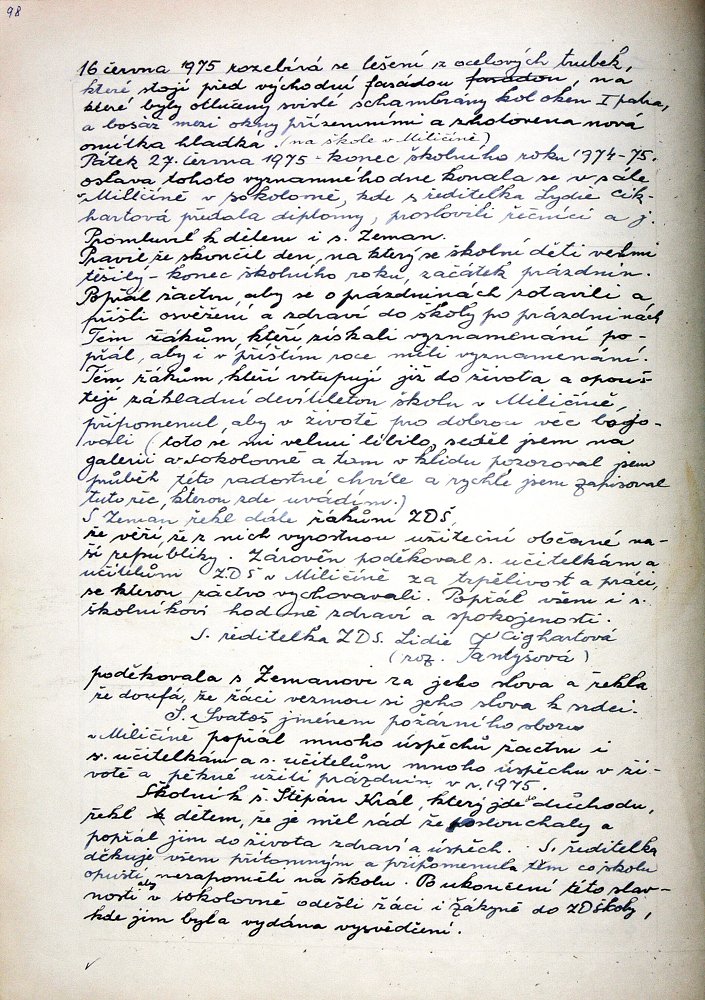 98
16 června 1975 rozebírá se lešení z ocelových trubek,
které stojí před východní fasádou fasádou, na
které byly otlučeny svislé schambrány kol oken I patra,
a bosáž mezi okny přízemními a zhotovena nová
omítka hladká. (na škole v Miličíně)
Pátek 27. června 1975 - konec školního roku 1974-75.
oslava tohoto významného dne konala se v sále
v Miličíně v sokolovně, kde s ředitelka Lydie Cik-
hartová předala diplomy, proslovili řečníci a j.
Promluvil k dětem i s. Zeman.
Pravil že skončil den, na který se školní děti velmi
těšily - konec školního roku, začátek prázdnin.
Popřál žactvu, aby se o prázdninách zotavili a
přišli osvěžení a zdraví do školy po prázdninách
Těm žákům, kteří získali vyznamenání po-
přál, aby i v příštím roce měli vyznamenání.
Těm žákům, kteří vstupují již do života a opouš-
tějí základní devítiletou školu v Miličíně,
připomenul, aby v životě pro dobrou věc bojo-
vali (toto se mi velmi líbilo, seděl jsem na
galerii v sokolovně a tam v klidu pozoroval jsem
průběh této radostné chvíle a rychle jsem zapisoval
tuto řeč, kterou zde uvádím.)
S Zeman řekl dále žákům ZDŠ
že věří, že z nich vyrostnou užiteční občané na-
ší republiky. Zárověn poděkoval s. učitelkám a
učitelům ZDŠ v Miličíně za trpělivost a práci,
se kterou žactvo vychovavali. Popřál všem i s.
školníkovi hodně zdraví a spokojenosti.
S. ředitelka ZDS. Lidie Cighartová
(roz. Fantyšová)
poděkovala s Zemanovi za jeho slova a řekla
že doufá, že žáci vezmou si jeho slova k srdci.
S. Svatoš jménem požárního sboru
v Miličíně popřál mnoho úspěchů žactvu i
s. učitelkám a s. učitelům mnoho úspěchu v ži-
votě a pěkné užití prázdnin v r. 1975.
Školník s. Štěpán Král, který jde do důchodu,
řekl dětem, že je měl rád že poslouchaly a
popřál jim do života zdraví a úspěch. S. ředitelka
děkuje všem přítomným a připomenula těm co školu
opustí aby nezapoměli na školu. Po ukončení této slav-
nosti v sokolovně odešli žáci i žákyně do ZDškoly,
kde jim byla vydána vysvědčení.